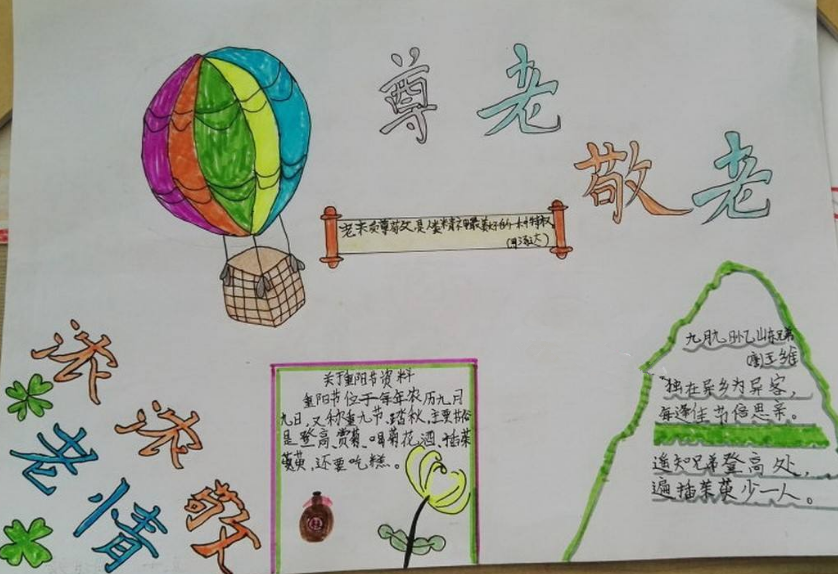 尊老
敬老
老来受尊敬,是人类精神最美好的一种特权。
(司汤达)
九月九日忆山东兄弟
唐王维
"独在异乡为异客,
每逢佳节倍思亲。
遥知兄弟登高处,
遍插茱萸少一人。
关于重阳节资料
重阳节位于每年农历九月
九日,又称重九节、踏秋,主要节俗
是登高,赏菊,喝菊花酒,插茱
萸,还要吃糕。
浓浓敬
老情